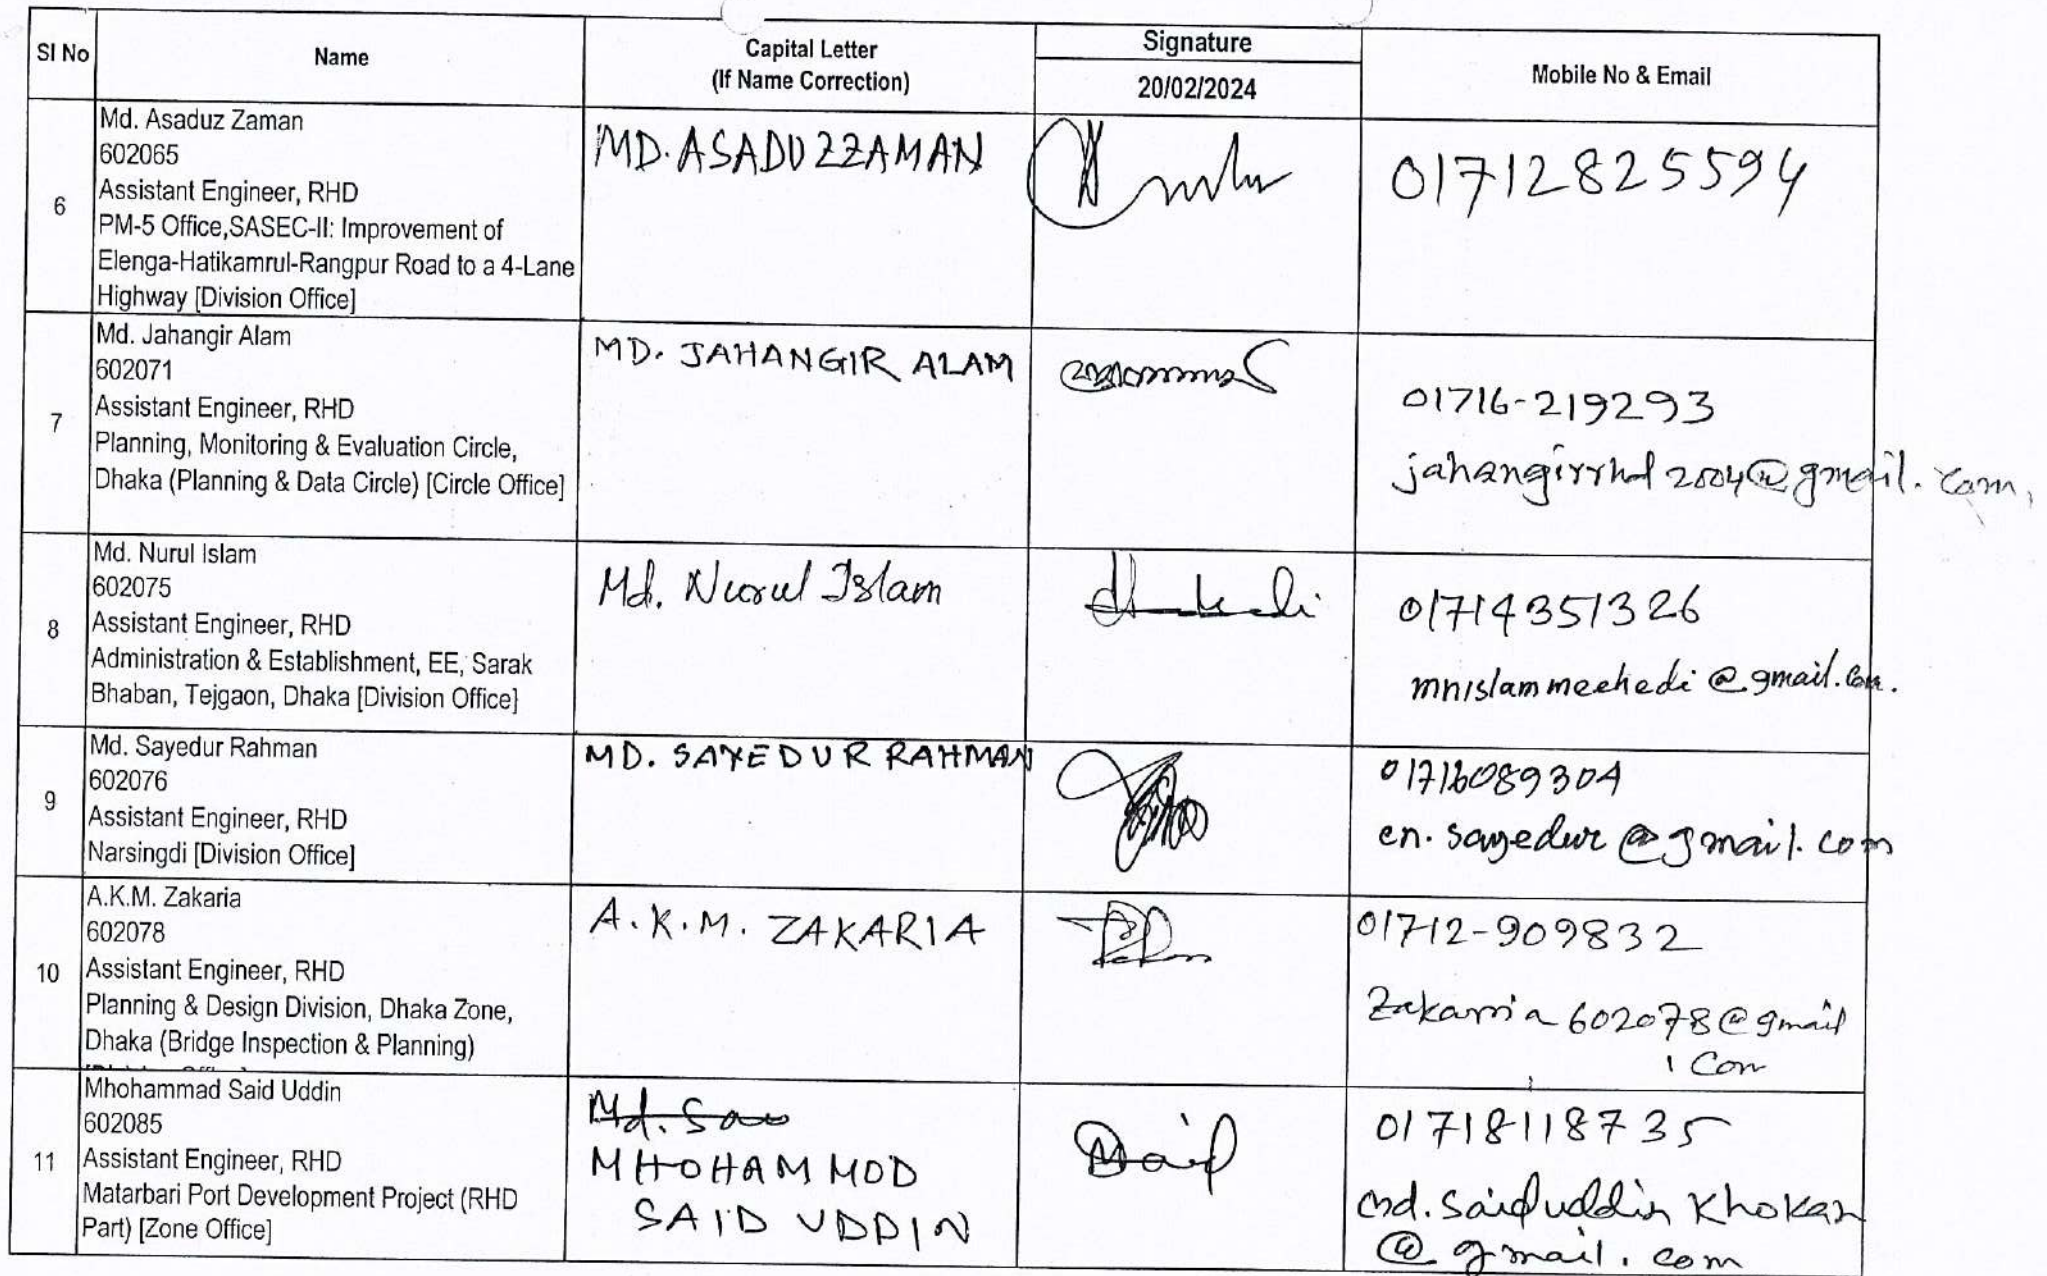 Sl No
Name
Capital Letter
(If Name Correction)
Signature
20/02/2024
Mobile No & Email
6
Md. Asaduz Zaman
602065
Assistant Engineer, RHD
PM-5 Office,SASEC-II: Improvement of
Elenga-Hatikamrul-Rangpur Road to a 4-Lane
Highway [Division Office]
MD. ASADUZZAMAN
01712825594
7
Md. Jahangir Alam
602071
Assistant Engineer, RHD
Planning, Monitoring & Evaluation Circle,
Dhaka (Planning & Data Circle) [Circle Office]
MD. JAHANGIR ALAM
01716-219293
jahangirrhd2004@gmail.com,
8
Md. Nurul Islam
602075
Assistant Engineer, RHD
Administration & Establishment, EE, Sarak
Bhaban, Tejgaon, Dhaka [Division Office]
Md. Nurul Islam
01714351326
mnislammeehedi@gmail.com.
9
Md. Sayedur Rahman
602076
Assistant Engineer, RHD
Narsingdi [Division Office]
MD. SAYEDUR RAHMAN
01716089304
en.sayedur@gmail.com
10
A.K.M. Zakaria
602078
Assistant Engineer, RHD
Planning & Design Division, Dhaka Zone,
Dhaka (Bridge Inspection & Planning)
A.K.M. ZAKARIA
01712-909832
Zakarria602078@gmail
.com
11
Mhohammad Said Uddin
602085
Assistant Engineer, RHD
Matarbari Port Development Project (RHD
Part) [Zone Office]
MHOHAMMOD
SAID UDDIN
01718118735
md.saiduddin khokan
@gmail.com